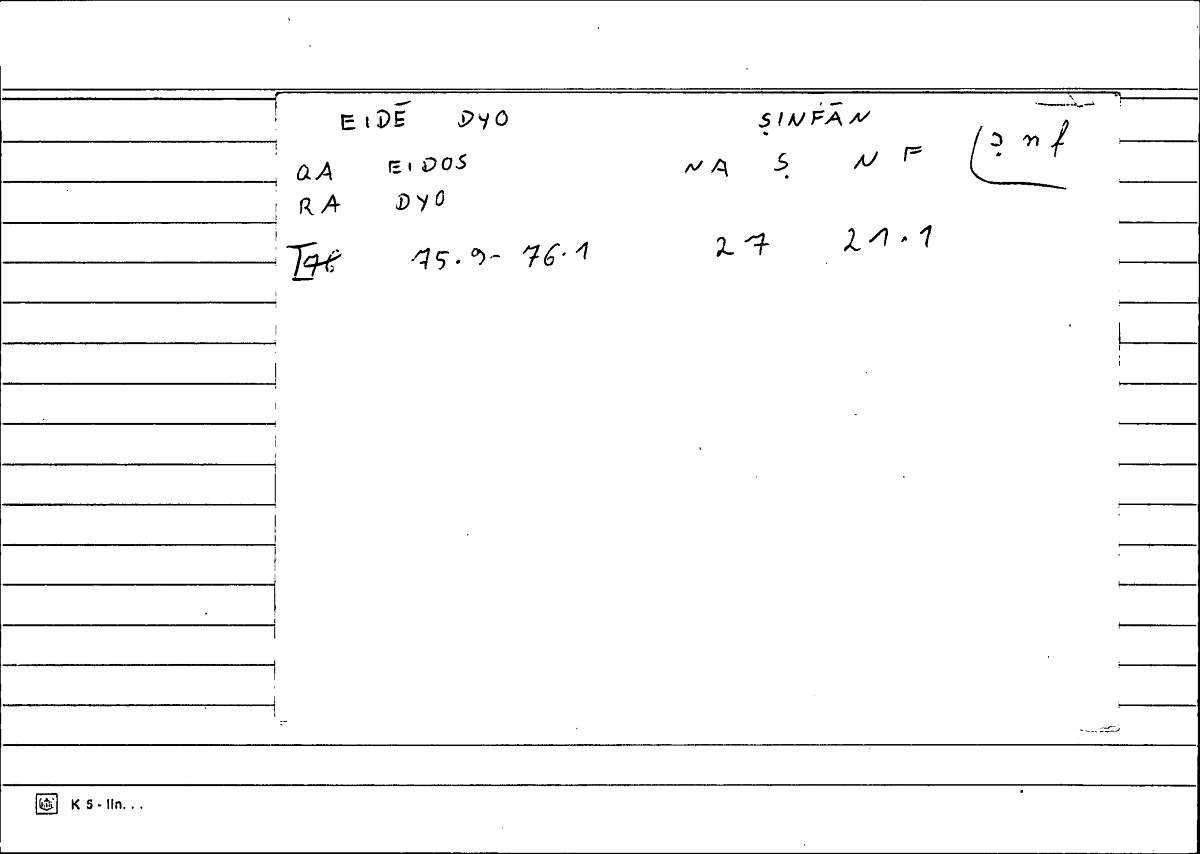 EIDĒ DYO ṢINFĀN
QA EIDOS NA Ṣ N F
RA DYO
75.9- 76.1 27 21.1
K 5 - lin. . .